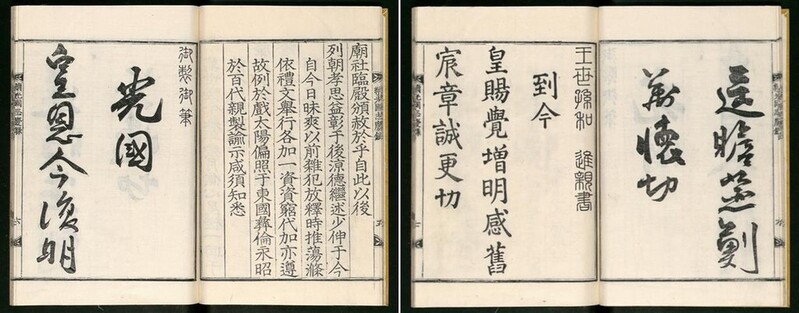 廟社臨殿頒赦於乎自此以後
列朝孝思益彰于後涼德繼述少伸于今
自今日昧爽以前雜犯放釋時推蕩滌
依禮文擧行各加一資資窮代加亦遵
故例於戲太陽偏照于東國彝倫永昭
於百代親製諭示咸須知悉
御製御筆
光國
皇恩今復明
遥瞻燕薊
萬懷切
王世孫和 進親書
到今
皇賜覺增明感舊
宸章誠更切